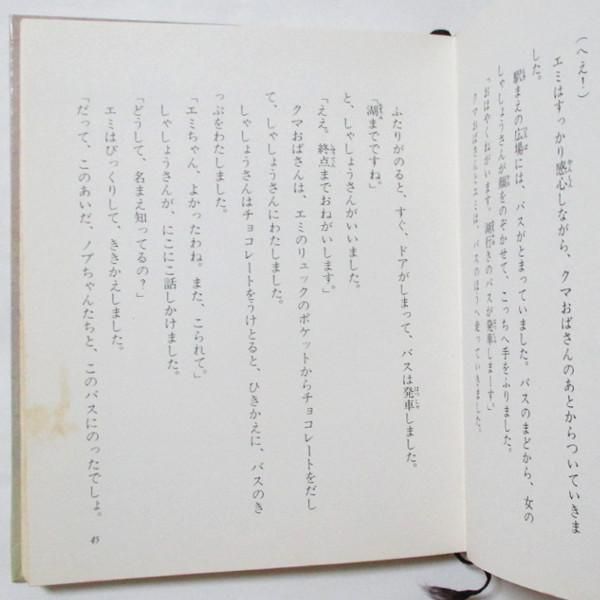 (へえ！)
エミはすっかり感心しながら、クマおばさんのあとからついていきま
した。
駅まえの広場には、バスがとまっていました。バスのまどから、女の
しゃしょうさんが顔をのぞかせて、こっちへ手をふりました。
「おはやくねがいます。湖行きのバスが発車しまーす」
クマおばさんとエミは、バスのほうへ走っていきました。
ふたりがのると、すぐ、ドアがしまって、バスは発車しました。
「湖までですね」
と、しゃしょうさんがいいました。
「ええ。終点までおねがいします」
クマおばさんは、エミのリュックのポケットからチョコレートをだし
て、しゃしょうさんにわたしました。
しゃしょうさんはチョコレートをうけとると、ひきかえに、バスのき
っぷをわたしました。
「エミちゃん、よかったわね。また、こられて」
しゃしょうさんが、にこにこ話しかけました。
「どうして、名まえ知ってるの？」
エミはびっくりして、ききかえしました。
「だって、このあいだ、ノブちゃんたちと、このバスにのったでしょ。
45